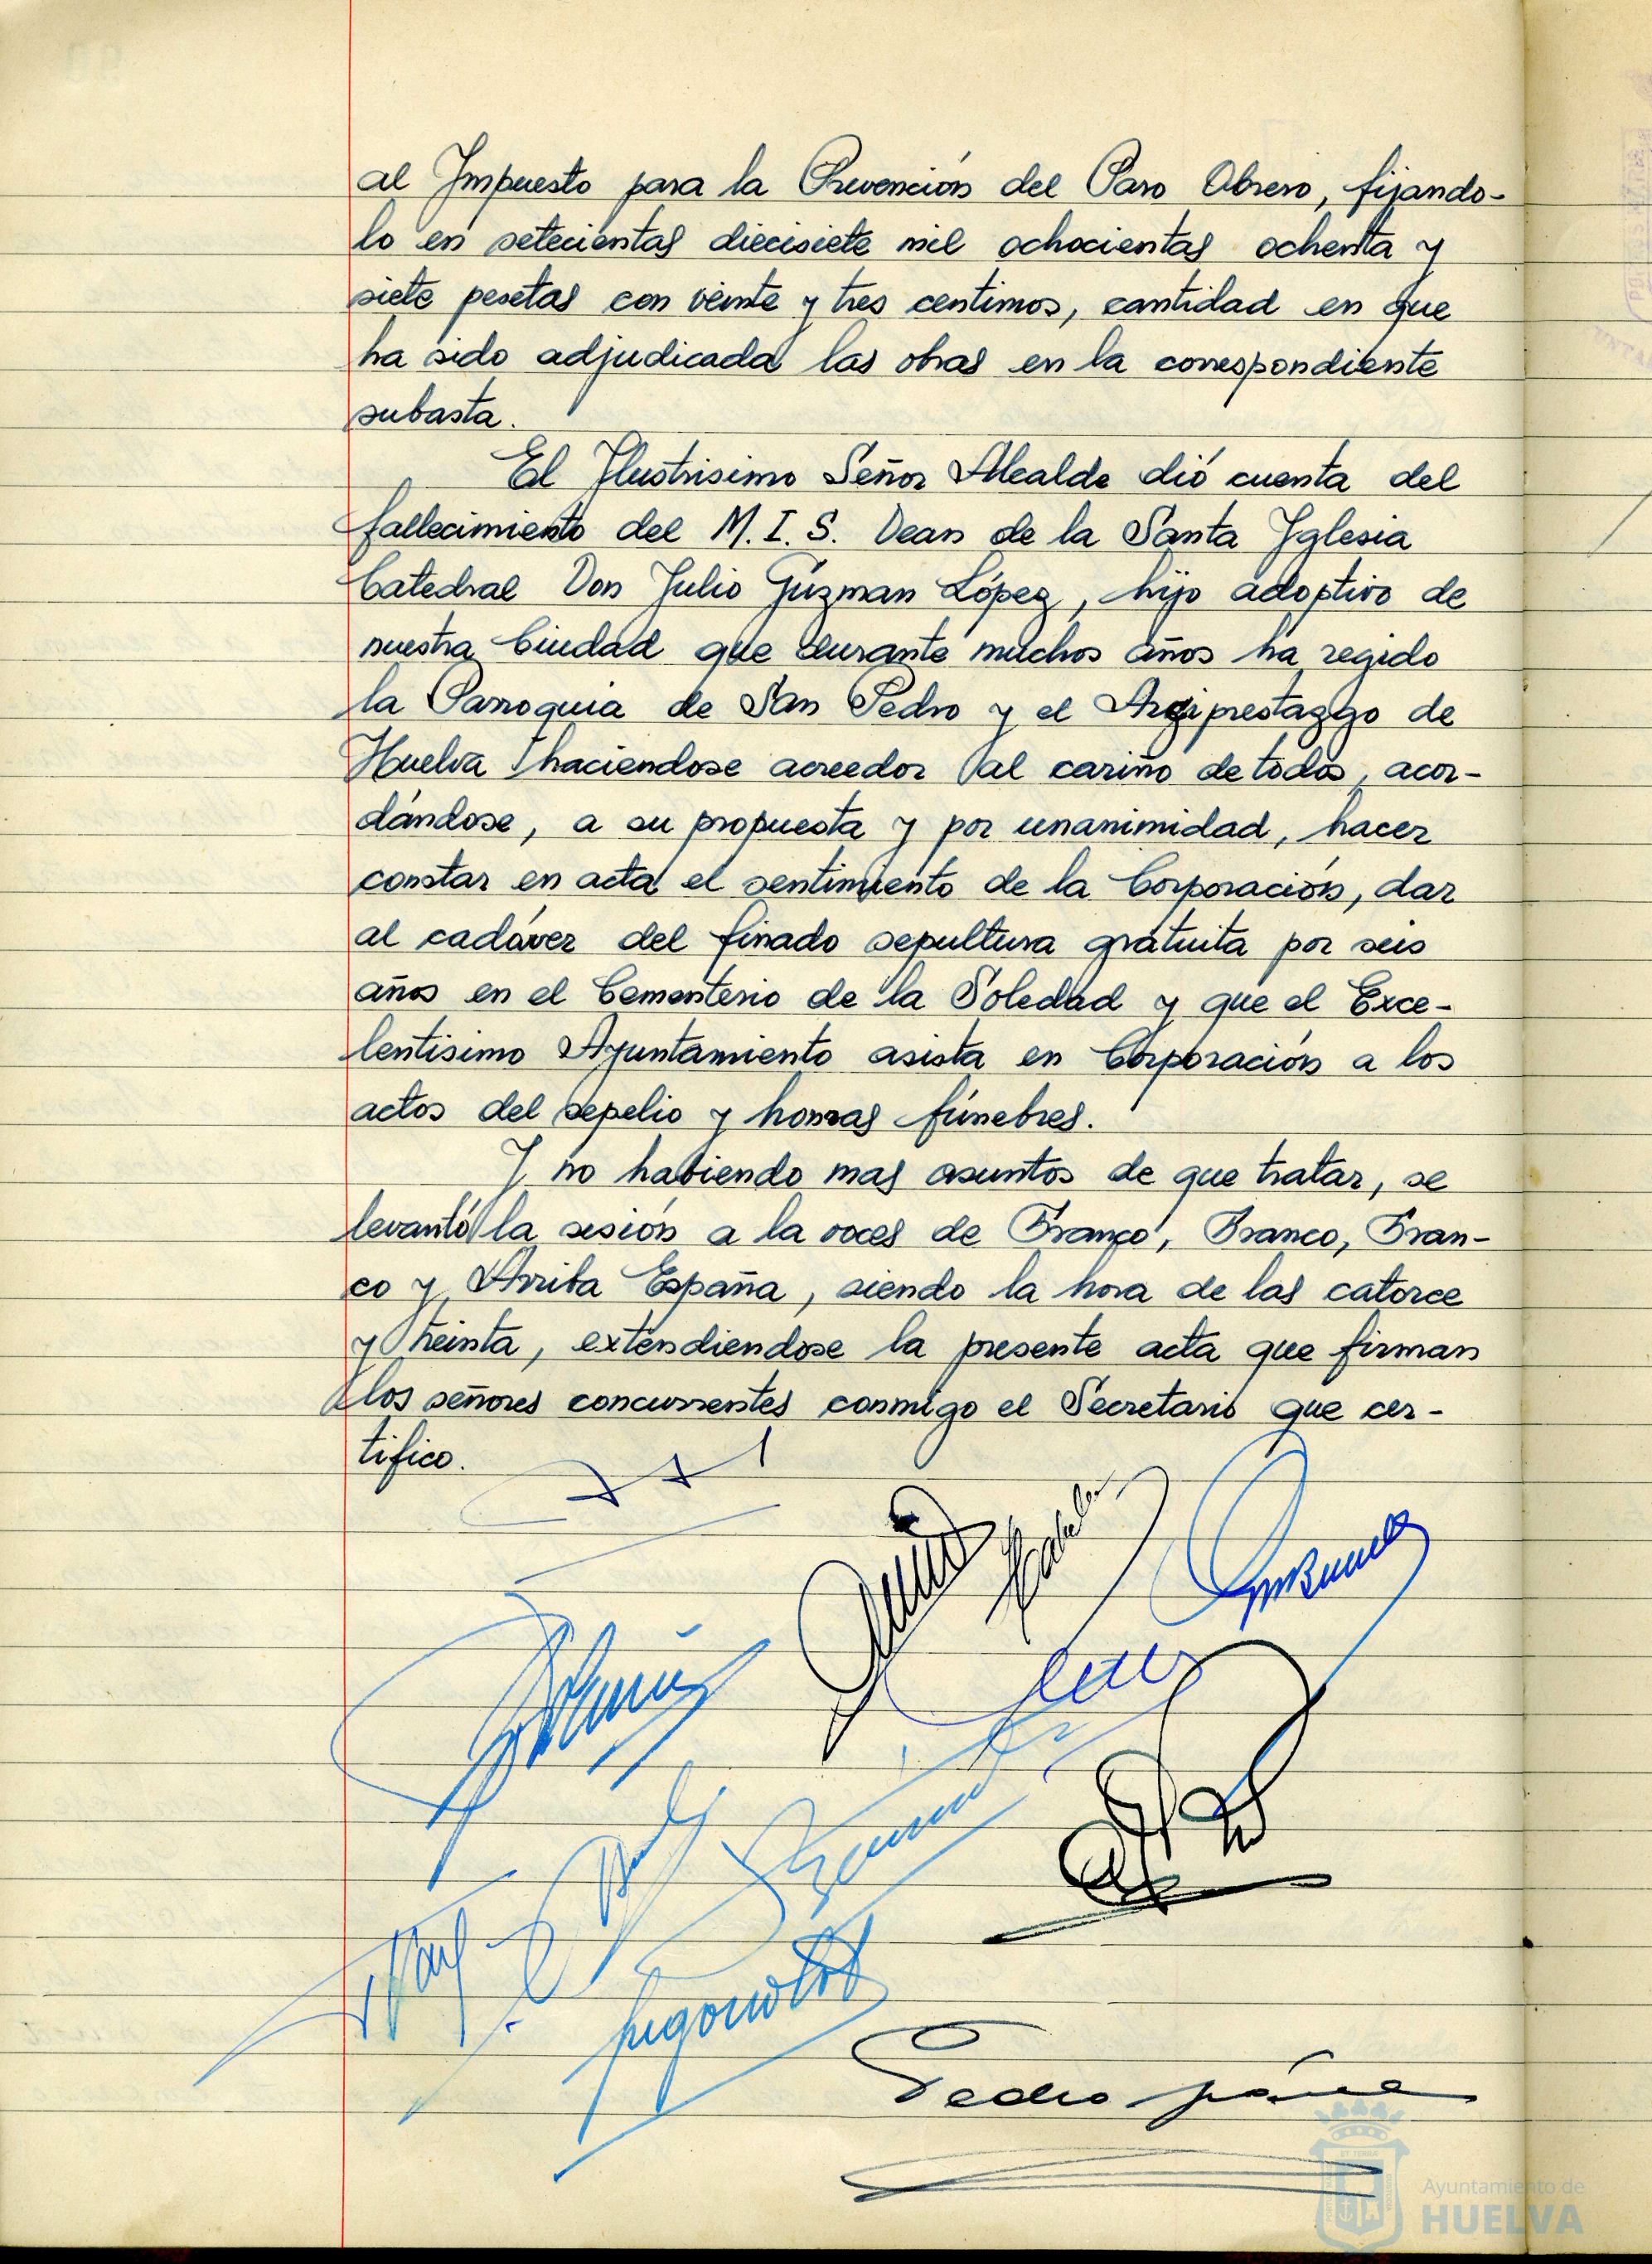 al Impuesto para la Prevención del Paro Obrero, fijando-
lo en setecientas diecisiete mil ochocientas ochenta y
siete pesetas con veinte y tres centimos, cantidad en que
ha sido adjudicada las obras en la correspondiente
subasta.
El Ilustrisimo Señor Alcalde dió cuenta del
fallecimiento del M. I. S. Dean de la Santa Iglesia
Catedral Don Julio Guzman López, hijo adoptivo de
nuestra Ciudad que durante muchos años ha regido
la Parroquia de San Pedro y el Arciprestazgo de
Huelva haciendose acreedor al cariño de todos, acor-
dándose, a su propuesta y por unanimidad, hacer
constar en acta el sentimiento de la Corporación, dar
al cadáver del finado sepultura gratuita por seis
años en el Cementerio de la Soledad y que el Exce-
lentisimo Ayuntamiento asista en Corporación a los
actos del sepelio y honras fúnebres.
Y no habiendo mas asuntos de que tratar, se
levantó la sesión a la voces de Franco, Franco, Fran-
co y Arriba España, siendo la hora de las catorce
y treinta, extendiendose la presente acta que firman
los señores concurrentes conmigo el Secretario que cer-
tifico.
Pedro
Ayuntamiento de
HUELVA